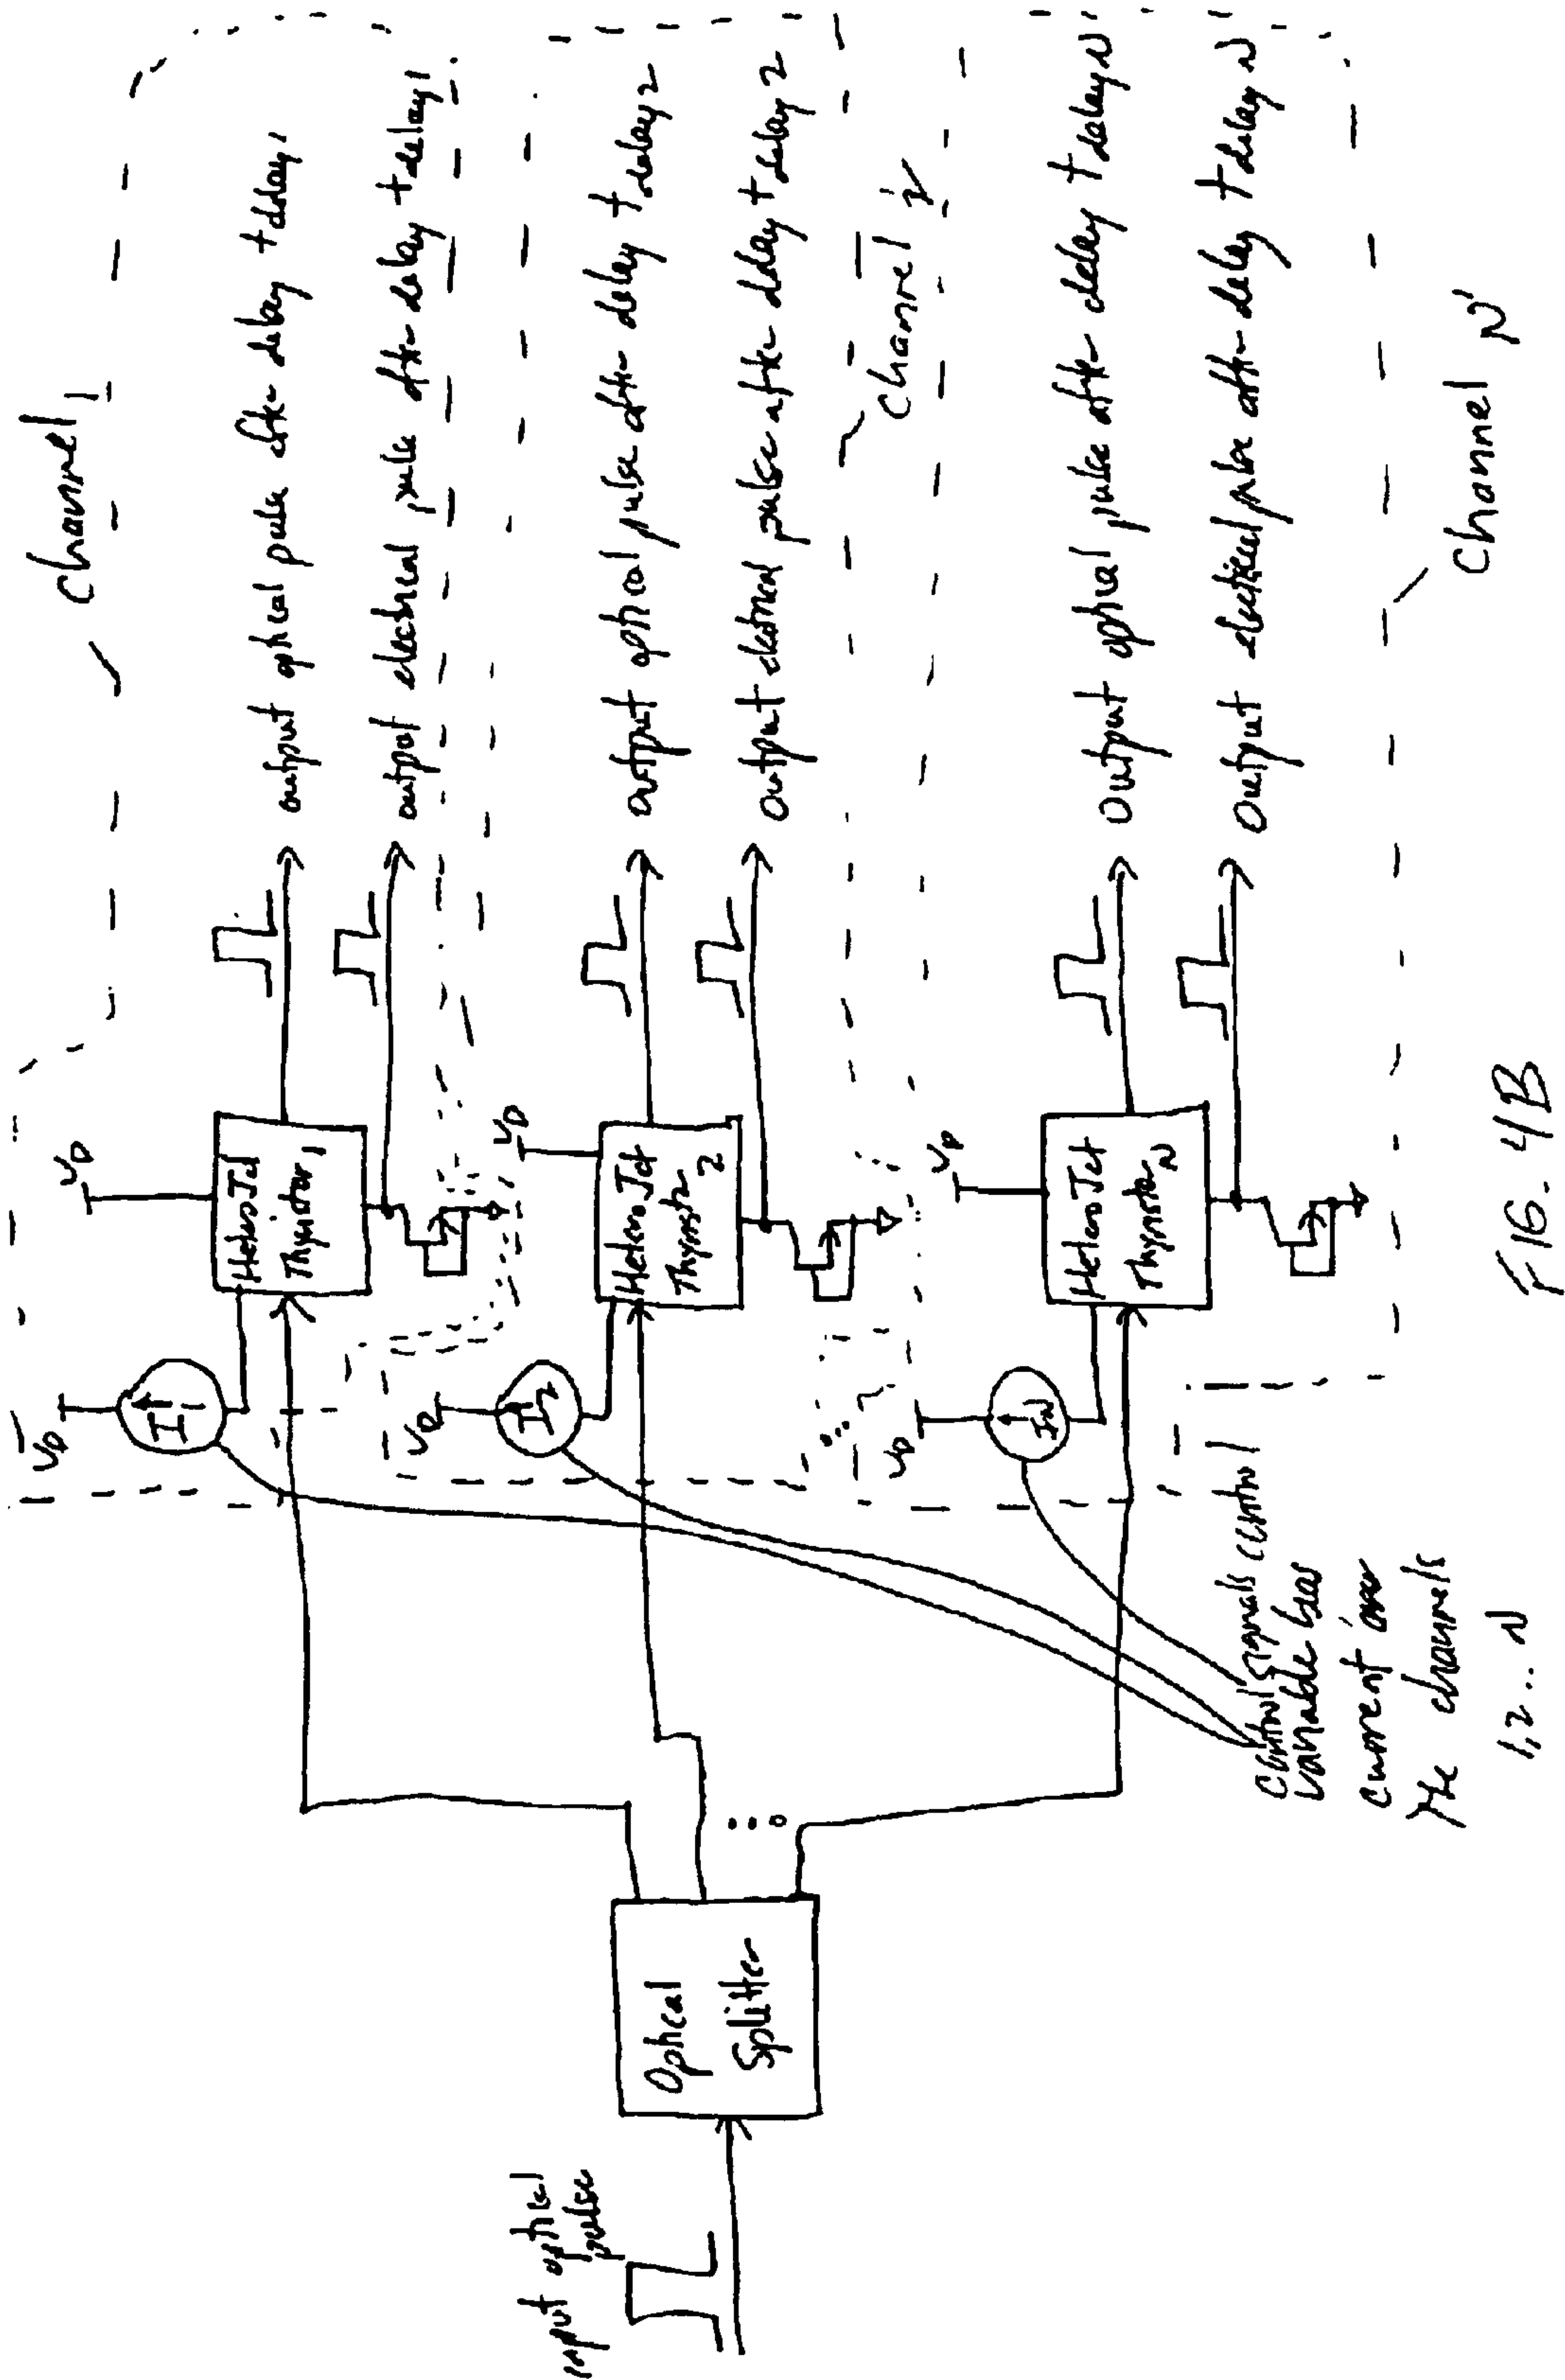 Channel 1
VD
VD
I1
HeteroJct
Thyristor 1
output optical pulse after delay tdelay1
output electrical pulse after delay tdelay1
VD
VD
I2
Hetero Jct
Thyristor 2
output optical pulse after delay tdelay2
output electrical pulse after delay tdelay2
Channel 2
input optical
pulse
Optical
Splitter
VD
VD
IN
Hetero Jct
Thyristor N
output optical pulse after delay tdelay N
output electrical pulse after delay tdelay N
Channel N
control signals control
variable bias
current over
the channels
1,2...N
FIG. 4B